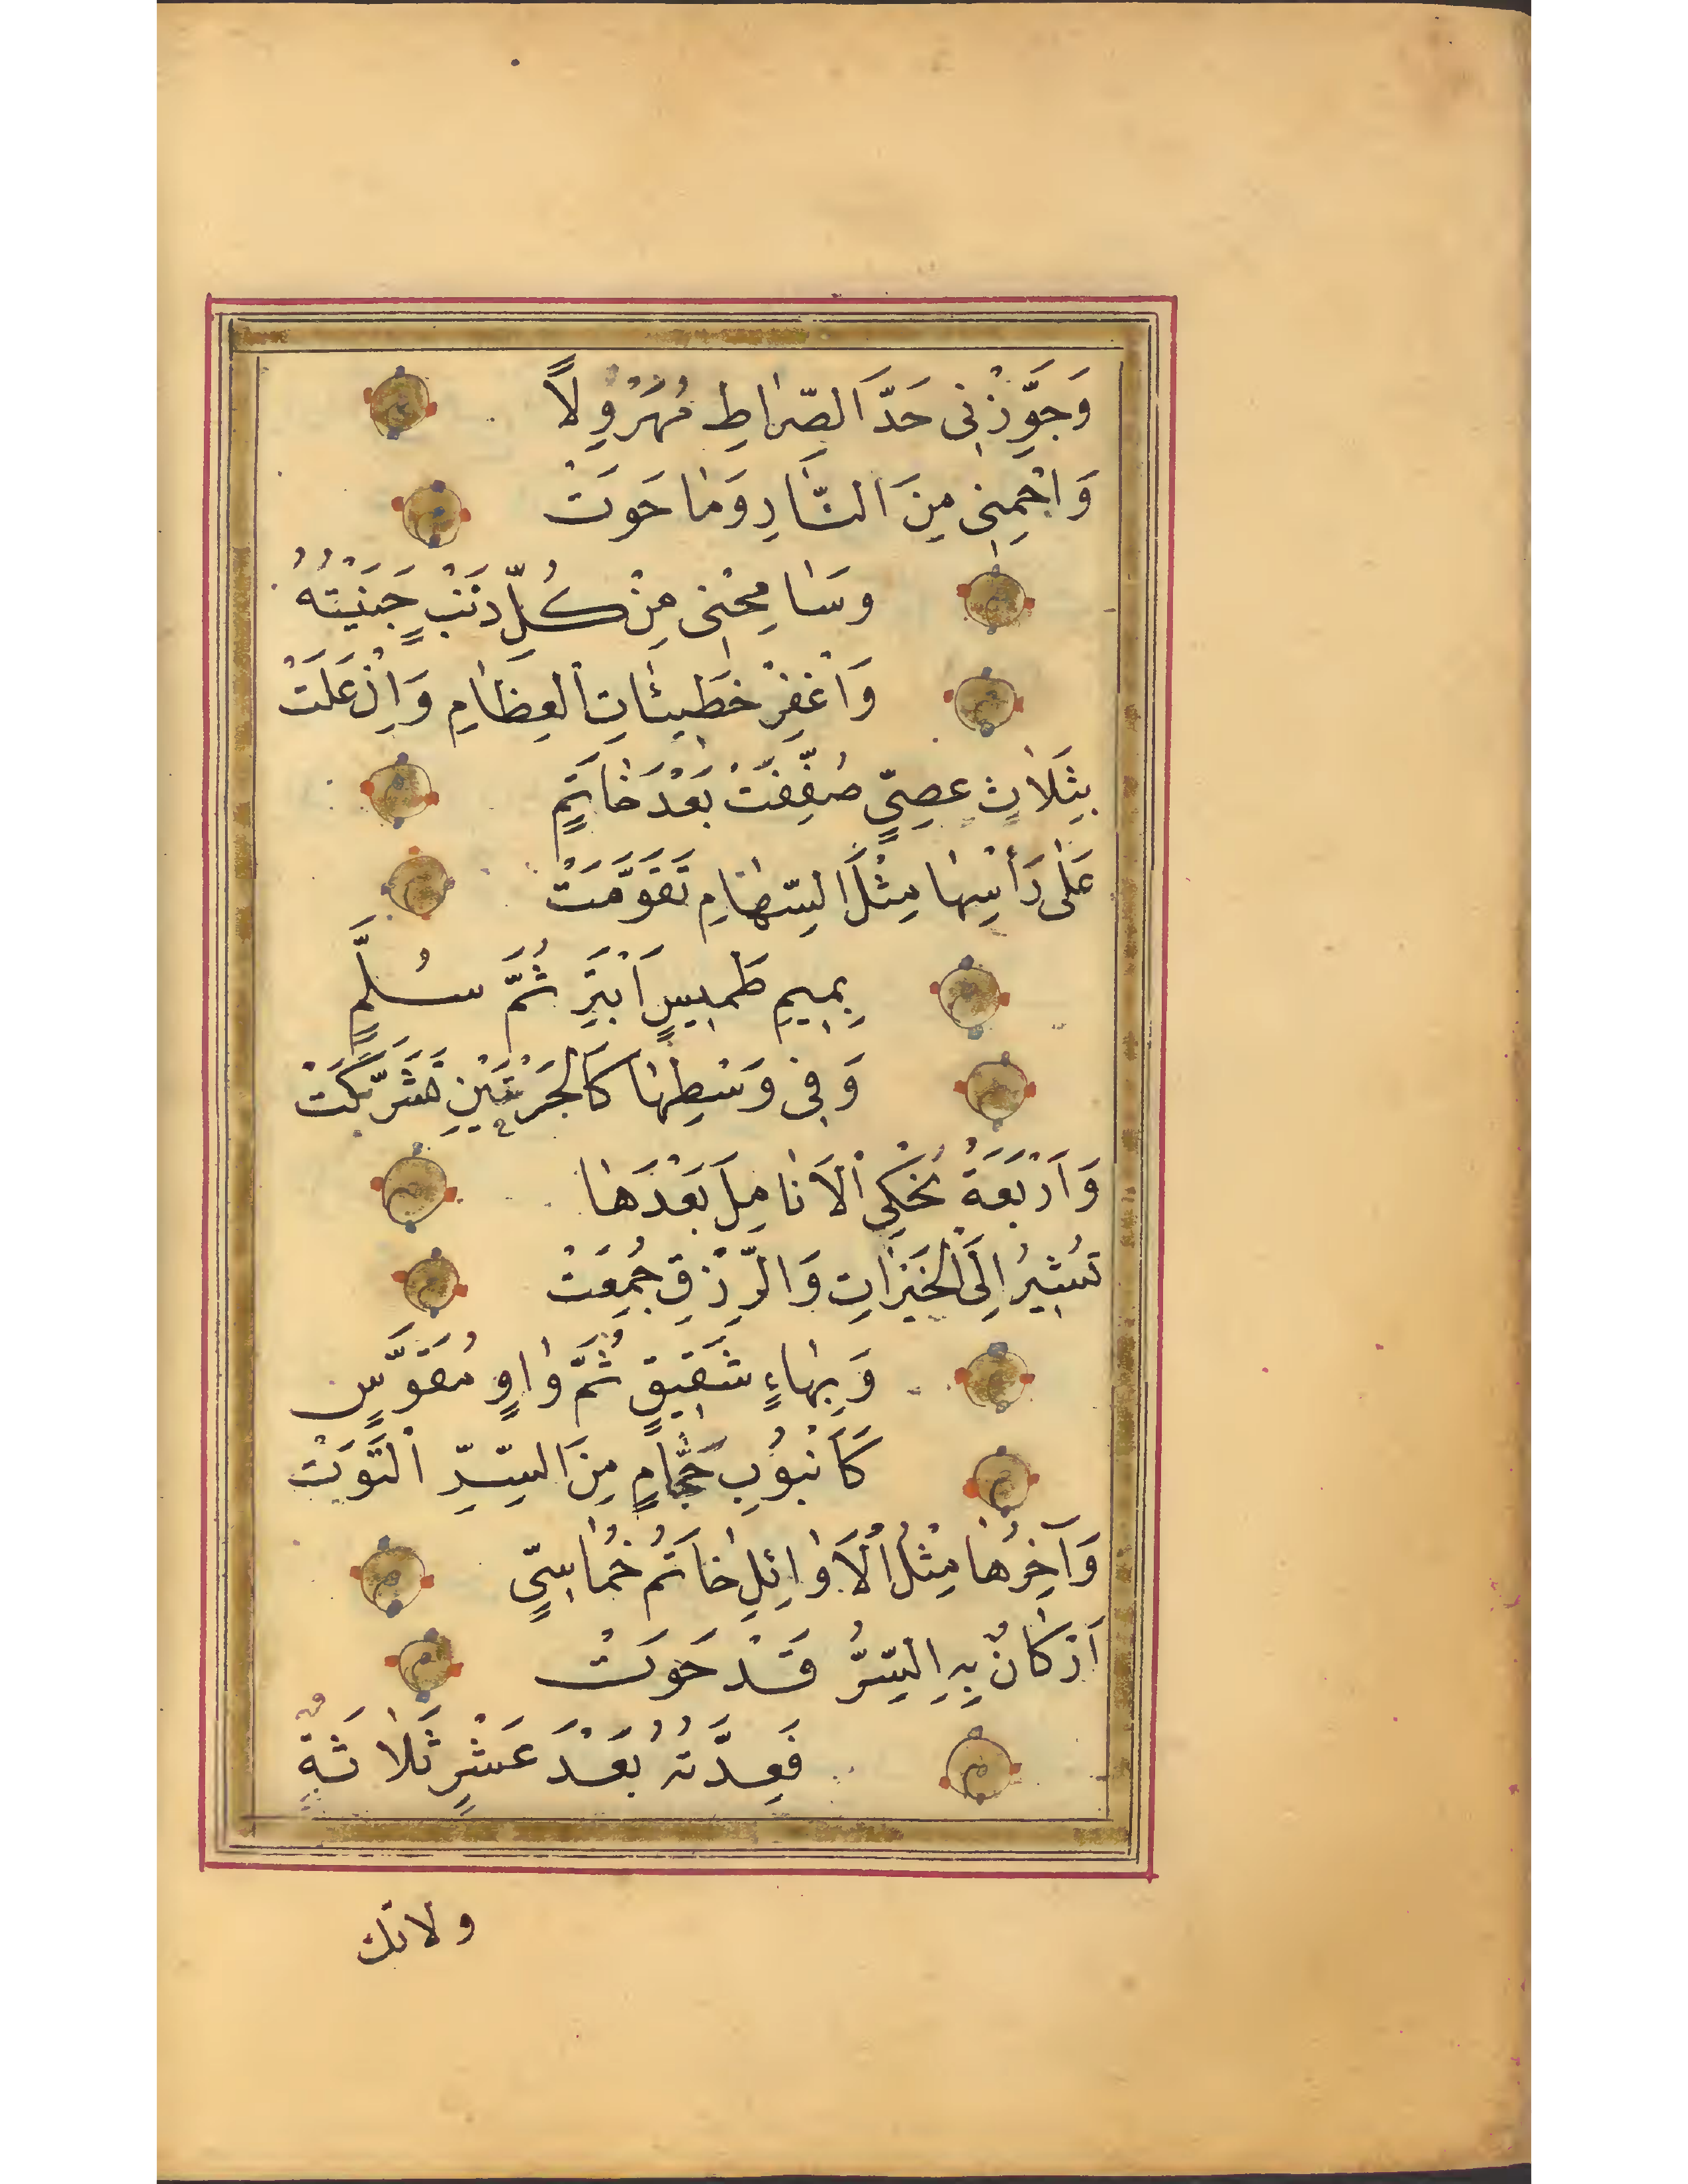 وَجَوِّزْنِي حَدَّ الصِّرَاطِ مُهَرْوِلًا
وَاحْمِنِي مِنَ النَّارِ وَمَا حَوَتْ
وَسَامِحْنِي مِنْ كُلِّ ذَنْبٍ جَنَيْتُهُ
وَاغْفِرْ خَطِيئَاتِ الْعِظَامِ وَاِنْ عَلَتْ
بِثَلَاثِ عِصِيٍّ صُفِّفَتْ بَعْدَ خَاتَمٍ
عَلَى رَأْسِهَا مِثْلَ السِّهَامِ تَقَوَّمَتْ
بِمِيمٍ طَمِيسٍ اَبْتَرَ ثُمَّ سُلَّمٍ
وَفِي وَسْطِهَا كَالْجَرَّتَيْنِ تَشَرَّبَكَتْ
وَاَرْبَعَةٌ تَحْكِي الْاَنَامِلَ بَعْدَهَا
تُشِيرُ اِلَى الْخَيْرَاتِ وَالرِّزْقِ جُمِعَتْ
وَبِهَاءٍ شَقِيقٍ ثُمَّ وَاوٍ مُقَوَّسٍ
كَاَنْبُوبِ حَجَّامٍ مِنَ السِّرِّ الْتَوَتْ
وَآخِرُهَا مِثْلُ الْاَوَائِلِ خَاتَمُ خُمَاسِيٍّ
اَرْكَانٌ بِهِ السِّرُّ قَدْ حَوَتْ
فَعِدَّتُهُ بَعْدَ عَشْرٍ ثَلَاثَةٍ
ولا تك